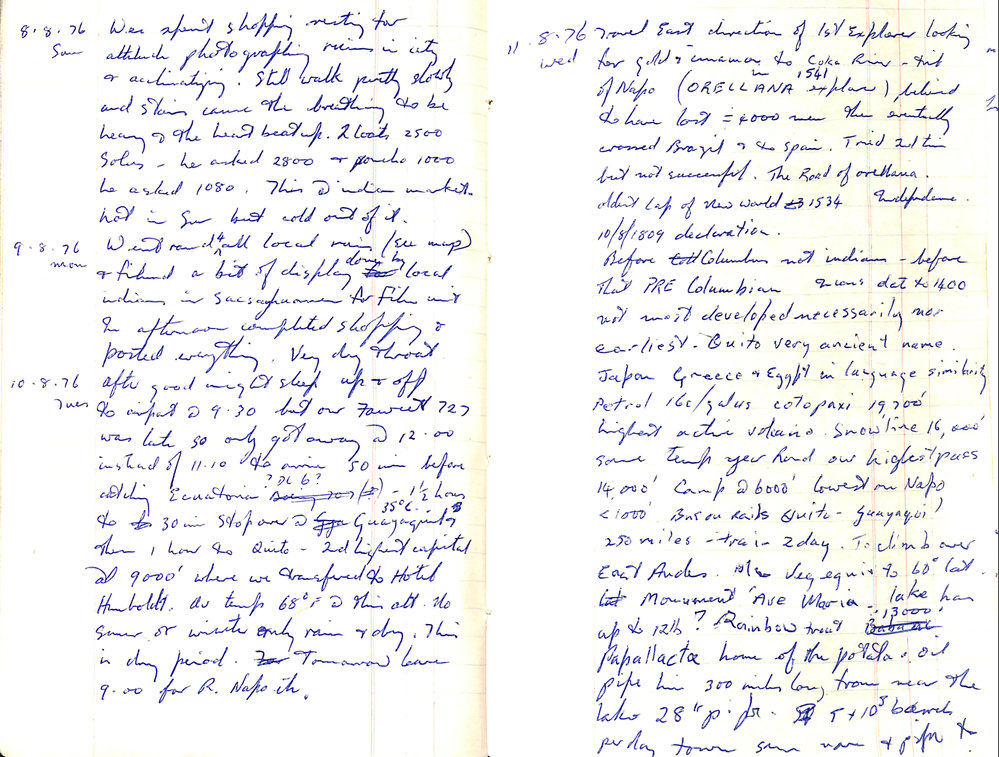 8.8.76 Was spent shopping resting for
Sun altitude photographing ruins in city
& acclimatizing. Still walk pretty slowly
and stairs cause the breathing to be
heavy & the heart beat up. 2 coats 2500
Soles - he asked 2800 & poncho 1000
he asked 1080. This @ indian market.
hot in Sun but cold out of it.
9.8.76 Went round 4 all local ruins (see map)
mon & filmed a bit of display done by local
indians in Sacsayhuaman for film unit
In afternoon completed shopping &
posted everything. Very dry throat
10.8.76 after good night sleep up & off
Tues to airport @ 9.30 but our Fawcett 727
was late so only got away @ 12.00
instead of 11.10 to arrive 50 min before
catching Ecuatoriana ? DC 6? - 1½ hours
to 30 min Stop over @ Guayaquil 35°C &
then 1 hour to Quito - 2nd highest capital
at 9000' where we transfered to Hotel
Humboldt. Av temp 68°F @ this alt. No
summer or winter only rain & dry. This
in dry period. Tomorrow leave
9.00 for R. Napo
11.8.76 Travel East direction of 1st Explorer looking
Wed for gold & cinnamon to Coka River - trib
of Napo (ORELLANA in 1541 explorer), belived
to have lost = 4000 men then eventually
crossed Brazil & to Spain. Tried 2nd tim
but not successful. The Road of orellana.
oldest Cap of New World 1534 Independence.
10/8/1809 declaration.
Before Columbus not indians - before
that PRE Columbian Incas date to 1400
not most developed necessarily nor
earliest. Quito very ancient name.
Japan Greece & Egypt in language similarity
Petrol 16c/galus cotopaxi 19,700'
highest active volcano. Snowline 16,000'
same temp year round our highest pass
14,000' Camp @ 6000' lowest on Napo
<1000' Bus on Rails Quito - Guayaquil
250 miles - train 2 day. To climb over
East Andes. Veg equiv to 60° lat.
Monument 'Ave Maria - lake has
up to 12lb? Rainbow trout 13000'
Papallacta home of the potato & oil
pipe line 300 miles long from near the
lake 28" pipe. 5 x 10⁵ barrels
per day town same name & pipe to